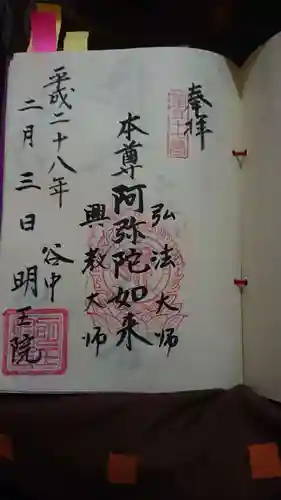 奉拝
弘法大師
本尊阿弥陀如来
興教大師
谷中 明王院
平成二十八年
二月三日